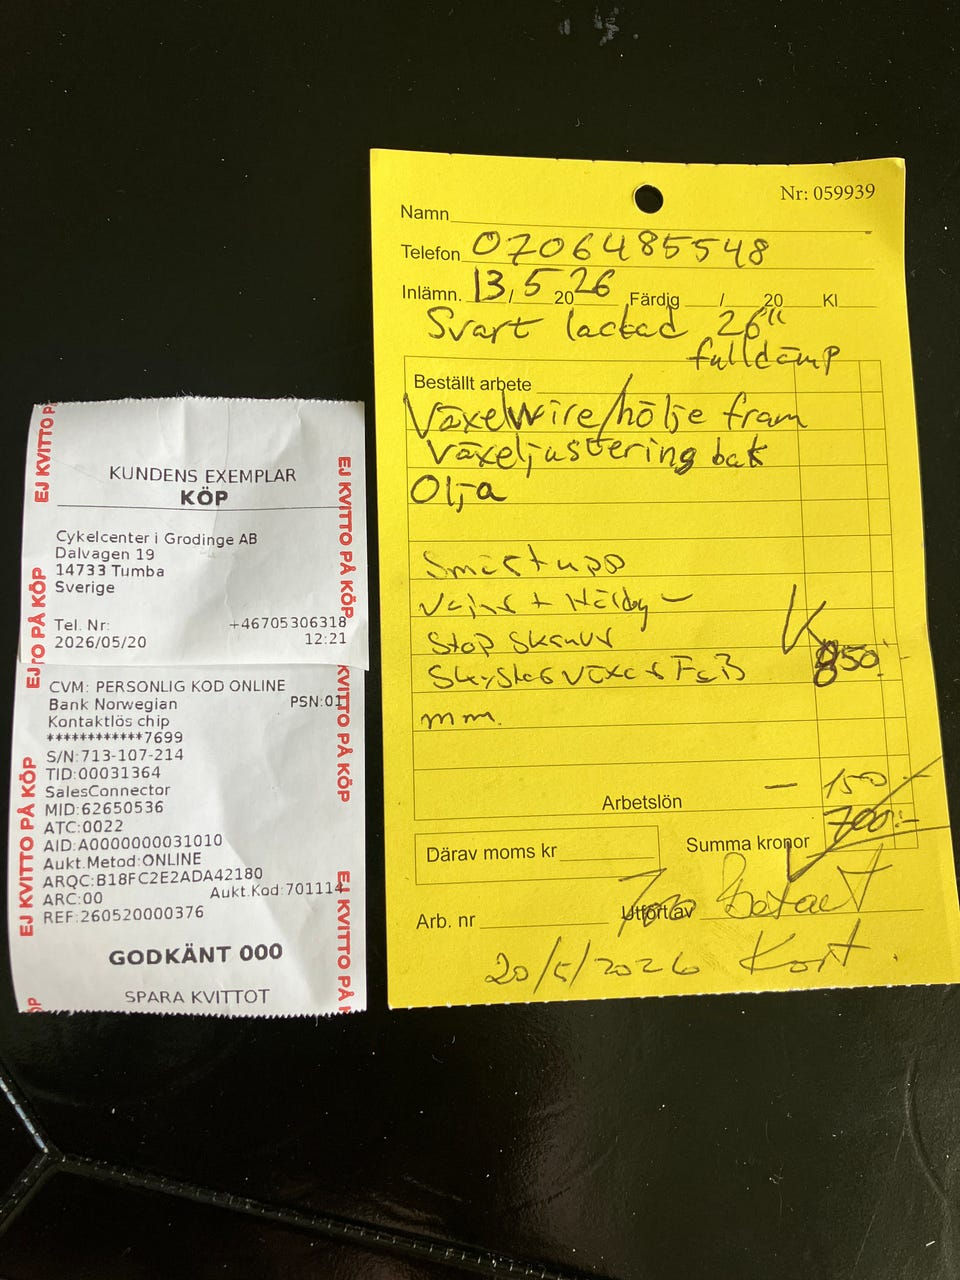 KUNDENS EXEMPLAR
KÖP
Cykelcenter i Grodinge AB
Dalvagen 19
14733 Tumba
Sverige
Tel. Nr: +46705306318
2026/05/20 12:21
CVM: PERSONLIG KOD ONLINE
Bank Norwegian PSN:01
Kontaktlös chip
************7699
S/N:713-107-214
TID:00031364
SalesConnector
MID:62650536
ATC:0022
AID:A0000000031010
Aukt.Metod:ONLINE
ARQC:B18FC2E2ADA42180
ARC:00 Aukt.Kod:701114
REF:260520000376
GODKÄNT 000
SPARA KVITTOT
EJ KVITTO PÅ KÖP
EJ KVITTO PÅ KÖP
EJ KVITTO PÅ KÖP
EJ KVITTO PÅ KÖP
Nr: 059939
Namn
Telefon 0706485548
Inlämn. 13/5 2026 Färdig / 20 Kl
Svart lackad 26"
fulldämp
Beställt arbete
Växelwire/hölje fram
växeljustering bak
Olja
Smörj upp
+
Stop skruv
F B 850:-
m m.
Arbetslön - 150:-
Därav moms kr Summa kronor 700:-
Arb. nr 700 Utfört av Betalt
20/5/2026 Kort.